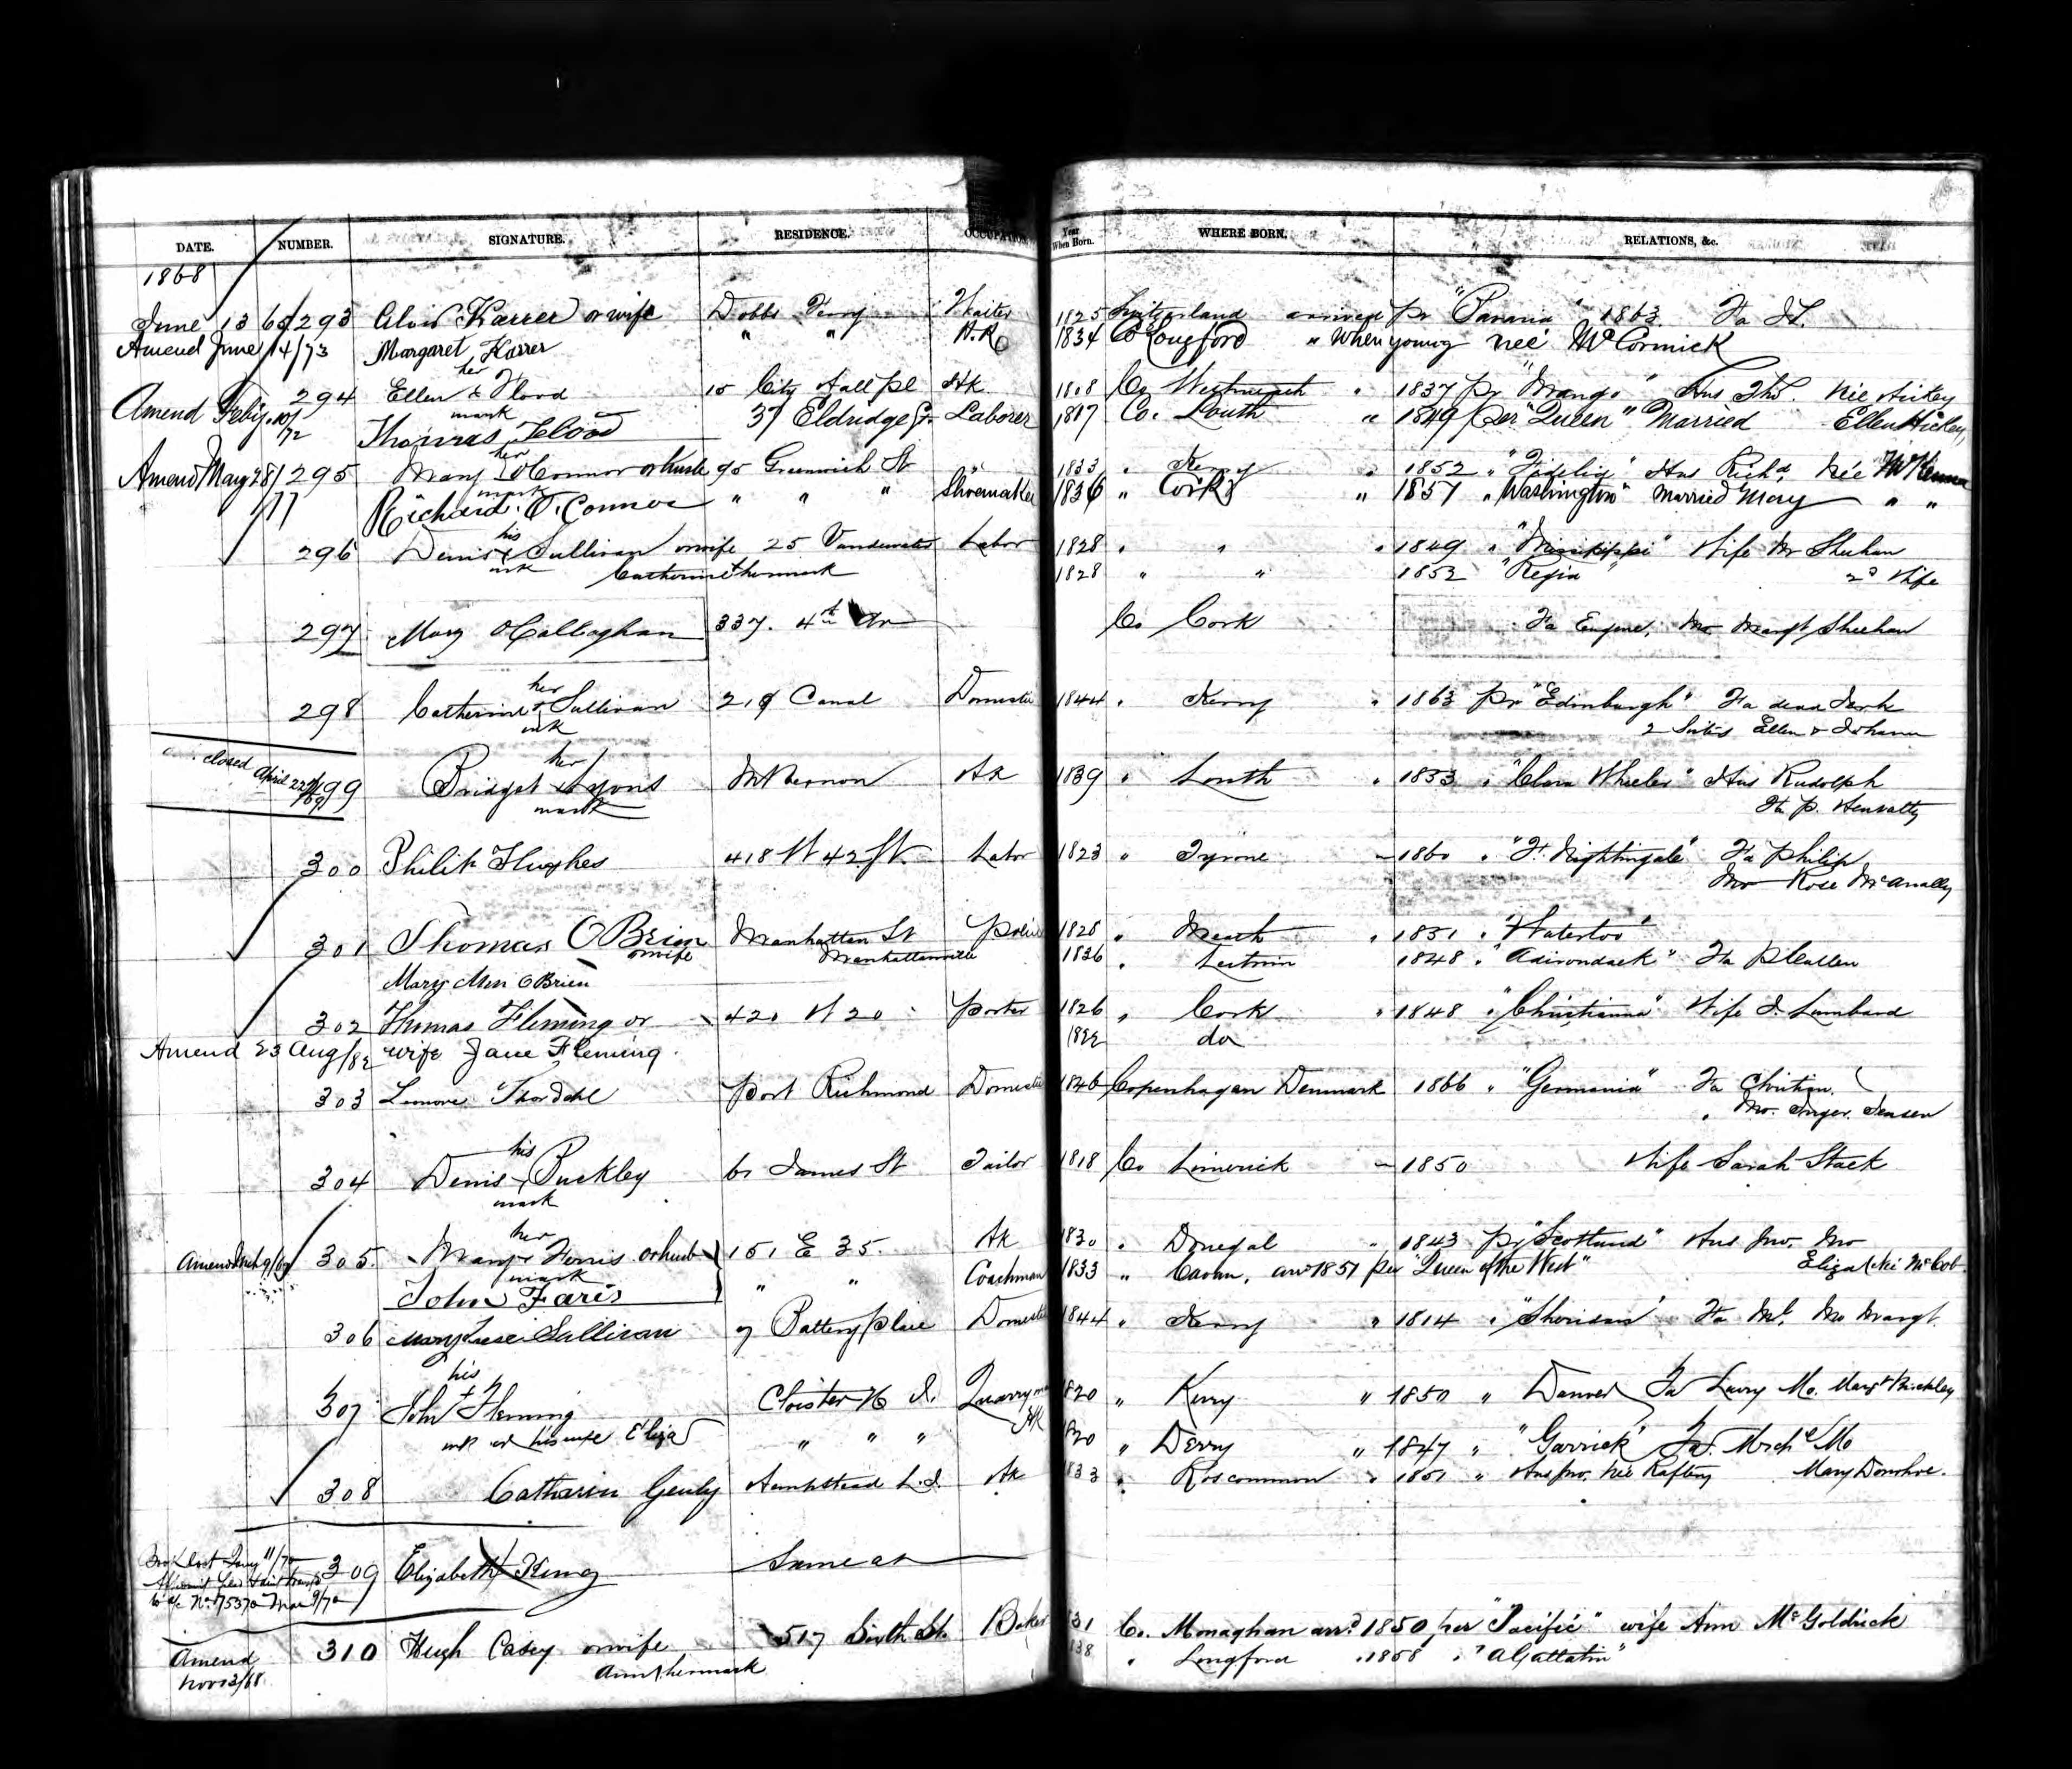 DATE. NUMBER. SIGNATURE. RESIDENCE. OCCUPATION Year When Born. WHERE BORN. RELATIONS, &c.
1868
June 13 293 Alois Karrer or wife Dobbs Ferry Waiter 1825 Switzerland arrived pr "Bavaria" 1863 Fa
Amend June 14/73 Margaret Karrer " " H.K. 1834 Co Longford " When young neé McCormick
294 Ellen her x mark Flood 15 City Hall Pl HK 1818 Co Westmeath " 1837 pr "Mango" Hus Ths. Née Hickey
Amend Feby. 10/72 Thomas Flood 37 Eldridge St. Laborer 1817 Co. Louth " 1849 per "Queen" Married Ellen Hickey,
Amend May 28/71 295 Mary her mark O'Connor or Husb 95 Greenwich St " 1833 " Kerry " 1852 " "Fidelia" Hus Richd. Née McKenna
Richard O'Connor " " " Shoemaker 1836 " Cork " 1857 " "Washington" Married Mary " "
296 Denis his x mk Sullivan or wife 25 Vandewater Labor 1828 " " " 1849 " "Mississippi" Wife M Sheehan
Catherine x her mark 1828 " " 1852 "Regia" 2d Wife
297 Mary O'Callaghan 337. 4th Av Co Cork Fa Eugene, Mo Margt Sheehan
298 Catherine her x mk Sullivan 219 Canal Domestic 1844 " Kerry " 1863 pr "Edinburgh" Fa dead
2 Sisters Ellen & Johanna
closed April 22nd/69 299 Bridget her x mark Lyons Mt Vernon HK 1839 " Louth " 1853 " "Clara Wheeler" Hus Rudolph
Fa P.
300 Philip Hughes 418 W 42 St. Labor 1823 " Tyrone 1860 " "F. Nightingale" Fa Philip
Mo Rose McAnally
301 Thomas OBrien or wife Manhattan St Police 1828 " Meath " 1851 " "Waterloo"
Manhattanville 1836 " Leitrim 1848 " "Adirondack" Fa P Cullen
Mary Ann OBrien
302 Thomas Fleming or 420 W 20 Porter 1826 " Cork " 1848 " "Christianna" Wife J. Lumbard
Amend 23 Aug/82 wife Jane Fleming. 1822 do
303 Lenore Thordahl Port Richmond Domestic 1846 Copenhagen Denmark 1866 " "Germania" Fa Christian.
Mo. Inger. Jensen
304 Denis his x mark Buckley 61 James St Tailor 1818 Co Limerick 1850 Wife Sarah Stack
305. Mary her x mark Ferris or husb 151 E 35. HK 1830 " Donegal " 1843 pr "Scotland" Hus Jno. Mo
John Faris " " Coachman 1833 " Cavan, arr 1851 per "Queen of the West" Elizabeth
306 Mary Sullivan 7 Battery Place Domestic 1844 " Kerry " "Sheridan" Fa Ml. Mo Margt.
307 John his + Fleming Quarryman 1820 " Kerry " 1850 " Fa Mo. Margt Buckley
mk or his wife Eliza " " " HK 1820 " Derry " 1847 " "Garrick" Fa. Mo
308 Catharin Hempstead L.I. HK 1833 " Roscommon " 1851 " Hus Jno. Née Raftery Mary Donohoe.
Book lost Jany 11/70 309 Elizabeth King Same as
to a/c No. 75370 Mar 9/70
Amend Nov 23/68 310 Hugh Casey or wife 517 Sixth St. Baker 31 Co. Monaghan arrd. 1850 per "Pacific" wife Ann McGoldrick
Ann x her mark 38 " Longford " 1858 " "A Gallatin"